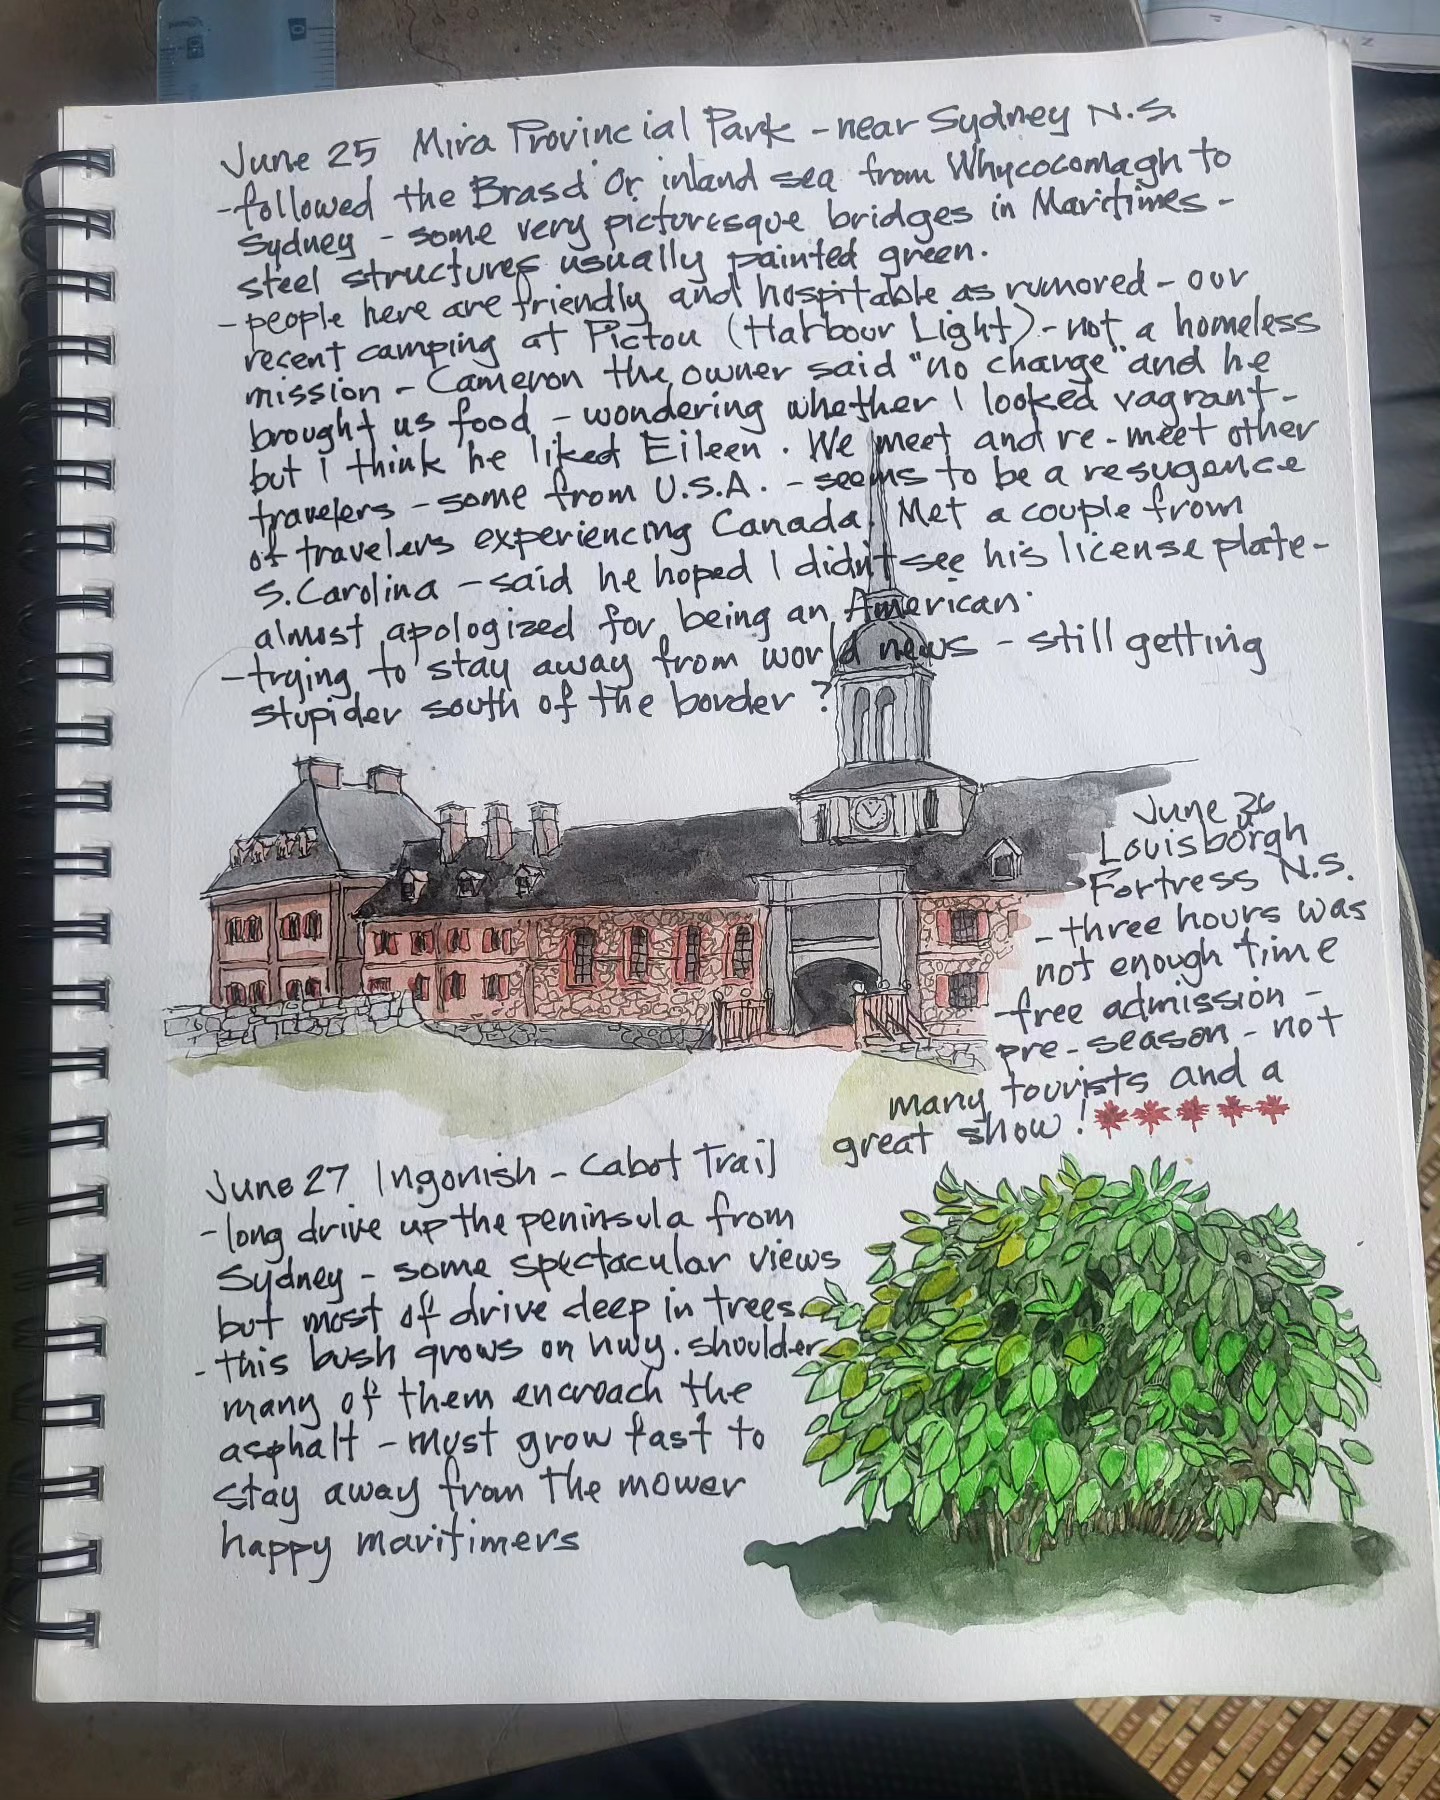 June 25 Mira Provincial Park - near Sydney N.S.
- followed the Brasd'Or inland sea from Whycocomagh to
Sydney - some very picturesque bridges in Maritimes -
steel structures usually painted green.
- people here are friendly and hospitable as rumored - our
recent camping at Pictou (Harbour Light) - not a homeless
mission - Cameron the owner said "no charge" and he
brought us food - wondering whether I looked vagrant -
but I think he liked Eileen. We meet and re-meet other
travelers - some from U.S.A. - seems to be a resugence
of travelers experiencing Canada. Met a couple from
S. Carolina - said he hoped I didn't see his license plate -
almost apologized for being an American.
- trying to stay away from world news - still getting
stupider south of the border?
June 26
Louisborgh
Fortress N.S.
- three hours was
not enough time
- free admission -
pre-season - not
many tourists and a
great show!
June 27 Ingonish - Cabot Trail
- long drive up the peninsula from
Sydney - some spectacular views
but most of drive deep in trees
- this bush grows on hwy. shoulder
many of them encroach the
asphalt - must grow fast to
stay away from the mower
happy maritimers